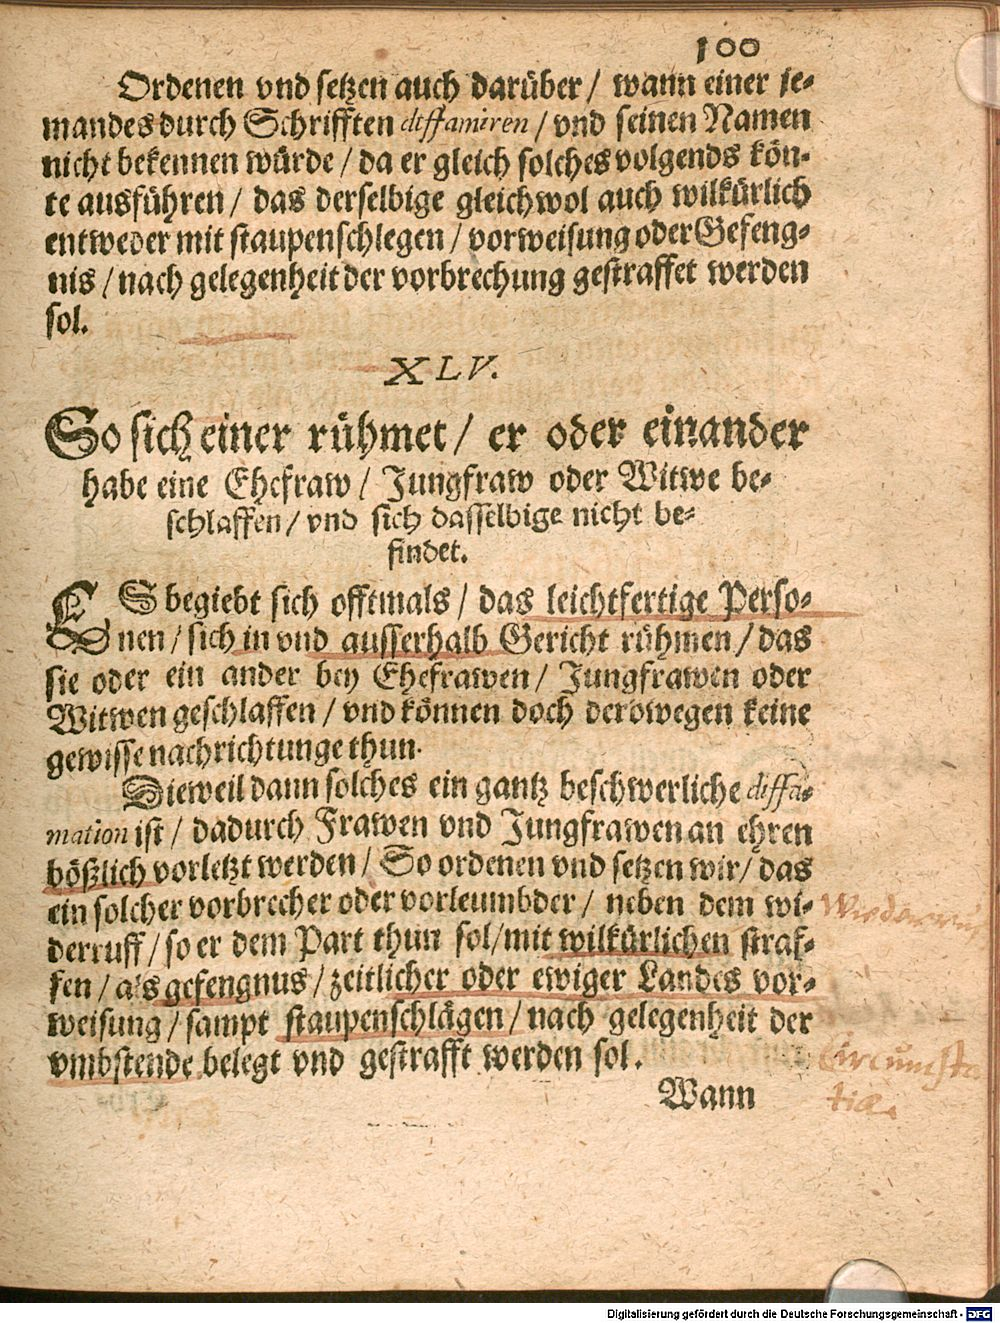 100
Ordenen vnd setzen auch darüber / wann einer je-
mandes durch Schrifften diffamiren / vnd seinen Namen
nicht bekennen würde / da er gleich solches volgends kön-
te ausführen / das derselbige gleichwol auch wilkürlich
entweder mit staupenschlegen / vorweisung oder Gefeng-
nis / nach gelegenheit der vorbrechung gestraffet werden
sol.
XLV.
So sich einer rühmet / er oder einander
habe eine Ehefraw / Jungfraw oder Witwe be-
schlaffen / vnd sich dasselbige nicht be-
findet.
ES begiebt sich offtmals / das leichtfertige Perso-
nen / sich in vnd ausserhalb Gericht rühmen / das
sie oder ein ander bey Ehefrawen / Jungfrawen oder
Witwen geschlaffen / vnd können doch derowegen keine
gewisse nachrichtunge thun.
Dieweil dann solches ein gantz beschwerliche diffa-
mation ist / dadurch Frawen vnd Jungfrawen an ehren
bößlich vorletzt werden / So ordenen vnd setzen wir / das
ein solcher vorbrecher oder vorleumbder / neben dem wi-
derruff / so er dem Part thun sol / mit wilkürlichen straf-
fen / als gefengnus / zeitlicher oder ewiger Landes vor-
weisung / sampt staupenschlägen / nach gelegenheit der
vmbstende belegt vnd gestrafft werden sol.
Wann
Circumsta
tiæ.
Digitalisierung gefördert durch die Deutsche Forschungsgemeinschaft - DFG